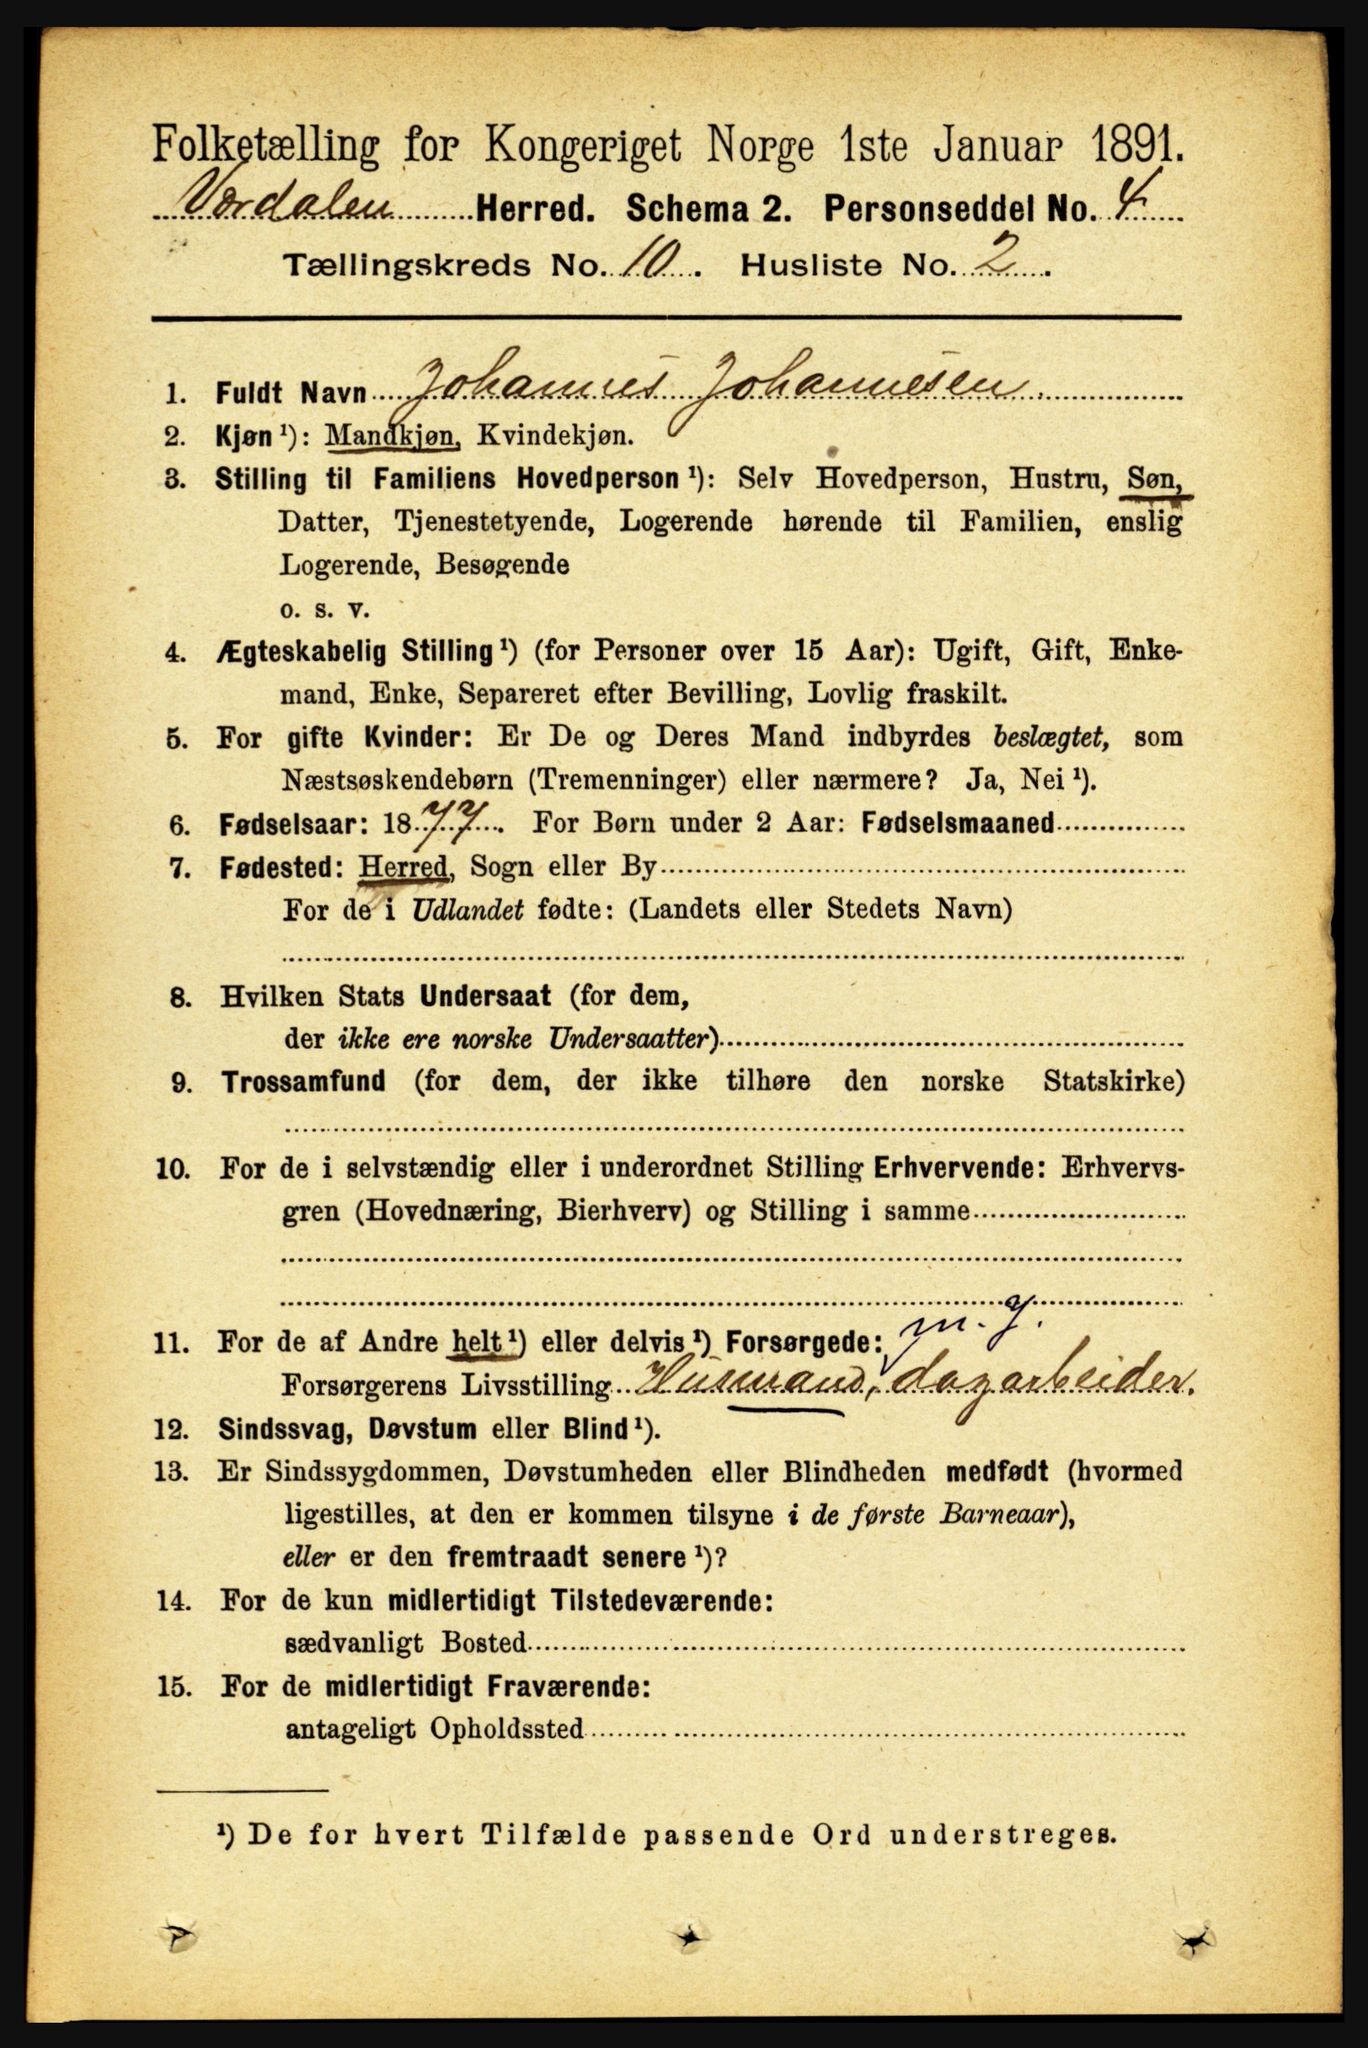 Folketælling for Kongeriget Norge 1ste Januar 1891.
Værdalen Herred. Schema 2. Personseddel No. 4
Tællingskreds No. 10. Husliste No. 2.
1. Fuldt Navn Johannes Johannesen
2. Kjøn ¹): Mandkjøn, Kvindekjøn.
3. Stilling til Familiens Hovedperson ¹): Selv Hovedperson, Hustru, Søn,
Datter, Tjenestetyende, Logerende hørende til Familien, enslig
Logerende, Besøgende
o. s. v.
4. Ægteskabelig Stilling ¹) (for Personer over 15 Aar): Ugift, Gift, Enke-
mand, Enke, Separeret efter Bevilling, Lovlig fraskilt.
5. For gifte Kvinder: Er De og Deres Mand indbyrdes beslægtet, som
Næstsøskendebørn (Tremenninger) eller nærmere? Ja, Nei ¹).
6. Fødselsaar: 1877. For Børn under 2 Aar: Fødselsmaaned
7. Fødested: Herred, Sogn eller By
For de i Udlandet fødte: (Landets eller Stedets Navn)
8. Hvilken Stats Undersaat (for dem,
der ikke ere norske Undersaatter)
9. Trossamfund (for dem, der ikke tilhøre den norske Statskirke)
10. For de i selvstændig eller i underordnet Stilling Erhvervende: Erhvervs-
gren (Hovednæring, Bierhverv) og Stilling i samme
m. J.
11. For de af Andre helt ¹) eller delvis ¹) Forsørgede:
Forsørgerens Livsstilling Husmand, dagarbeider.
12. Sindssvag, Døvstum eller Blind ¹).
13. Er Sindssygdommen, Døvstumheden eller Blindheden medfødt (hvormed
ligestilles, at den er kommen tilsyne i de første Barneaar),
eller er den fremtraadt senere ¹)?
14. For de kun midlertidigt Tilstedeværende:
sædvanligt Bosted
15. For de midlertidigt Fraværende:
antageligt Opholdssted
¹) De for hvert Tilfælde passende Ord understreges.